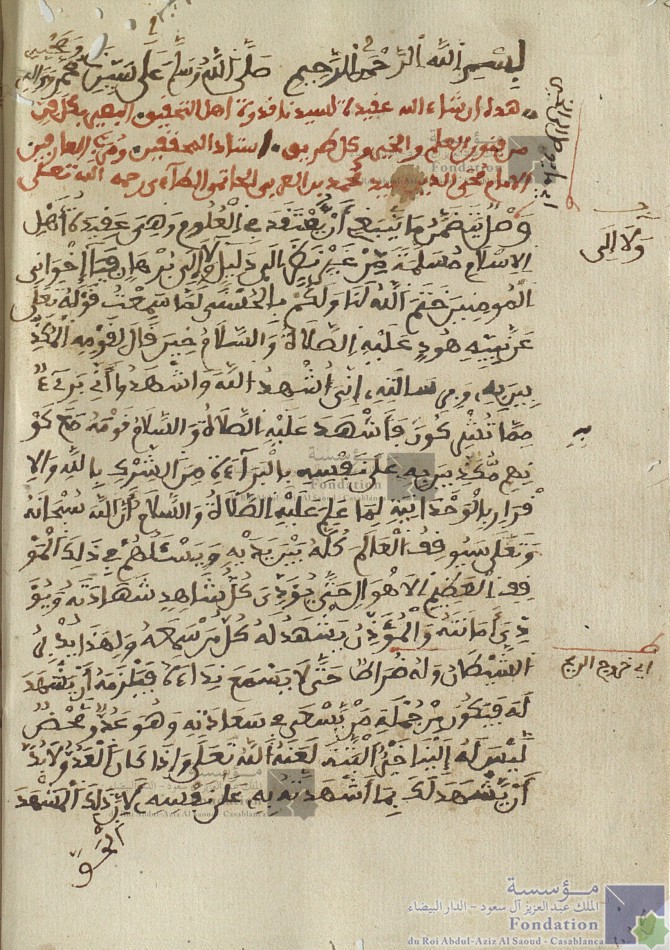 بسم الله الرحمن الرحيم صلى الله وسلم على نبينا محمد وءاله وصحبه
هذا ان شاء الله عقيدة لسيدنا قدوة اهل التحقيق البصير بكل فن
من فنون العلم والخبير وكل طريق استاذ المحققين ومربي العارفين
الامام محي الدين سيد محمد بن العربي الحاتمي الطاءى رحمه الله تعالى
وصل يتضمن ما ينبغي أن يعتقد في العلوم وهى عقيدة أهل
الاسلام مسلمة من غير نظر الى دليل ولا الى برهان فيا إخواني
المومنين ختم الله لنا ولكم بالحسنى لما سمعت قوله تعلى
عن نبيه هود عليه الصلاة والسلام حين قال لقومه المكذ
بين به، ومرسالته، انى أشهد الله واشهدوا أني برىء
مما تشركون فأشهد عليه الصلاة والسلام قومه مع كو
نهم مكذبين به على نفسه بالبرآءة من الشرك بالله والا
قرار بالوحدانية لما علم عليه الصلاة والسلام أن الله سبحانه
وتعلى سيوقف العالم كله بين يديه ويسئلهم في ذلك المو
قف العظيم الاهوال حتى يؤدى كل شاهد شهادته ويؤ
دي أمانته والمؤذن يشهد له كل من سمعه ولهذا يدبر
الشيطان وله ضراط حتى لا يسمع نداءه فيلزمه أن يشهد
له فيكون من جملة من يسعى في سعادته وهو عدو محض
ليس له الينا خير البتة لعنه الله تعلى وإذا كان العدو لا بد
أن يشهد لك بما أشهدته به على نفسه لان ذلك المشهد
الحق
ولا الى
به
اي خروج الريح
مؤسسة
الملك عبد العزيز آل سعود - الدار البيضاء
Fondation
du Roi Abdul-Aziz Al Saoud - Casablanca